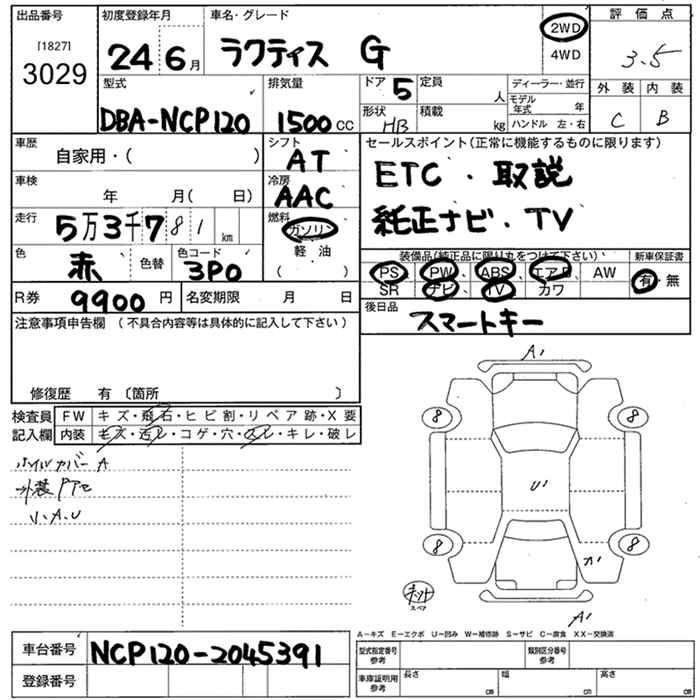 出品番号
[1827]
3029
初度登録年月
24 6月
車名・グレード
ラクティス G
2WD
4WD
評価点
3.5
型式
DBA-NCP120
排気量
1500 CC
ドア 5
定員 人
形状 HB
積載 kg
ディーラー・並行
モデル年式 年
ハンドル 左・右
外装 内装
C B
車歴
自家用・( )
シフト
AT
車検
年 月( 日)
冷房
AAC
走行
5万3千781 km
燃料
ガソリン
軽油
( )
色
赤
色替
色コード
3P0
R券 9900 円
名変期限 月 日
セールスポイント(正常に機能するものに限ります)
ETC・取説
純正ナビ・TV
装備品(純正品に限り丸をつけて下さい)
新車保証書
PS PW ABS エアB AW
SR ナビ TV カワ
有・無
後日品
スマートキー
注意事項申告欄 (不具合内容等は具体的に記入して下さい)
修復歴 有 〔箇所 〕
検査員記入欄
FW キズ・飛石・ヒビ割・リペア跡・X要
内装 キズ・汚レ・コゲ・穴・スレ・キレ・破レ
ホイルカバーA
外装
小A.U
A1
8 8
U1
8 8
A1
スペア
A1
A-キズ E-エクボ U-凹み W-補修跡 S-サビ C-腐食 XX-交換済
車台番号
NCP120-2045391
登録番号
型式指定番号 参考
類別区分番号 参考
車庫証明用 参考
長さ cm
幅 cm
高さ cm